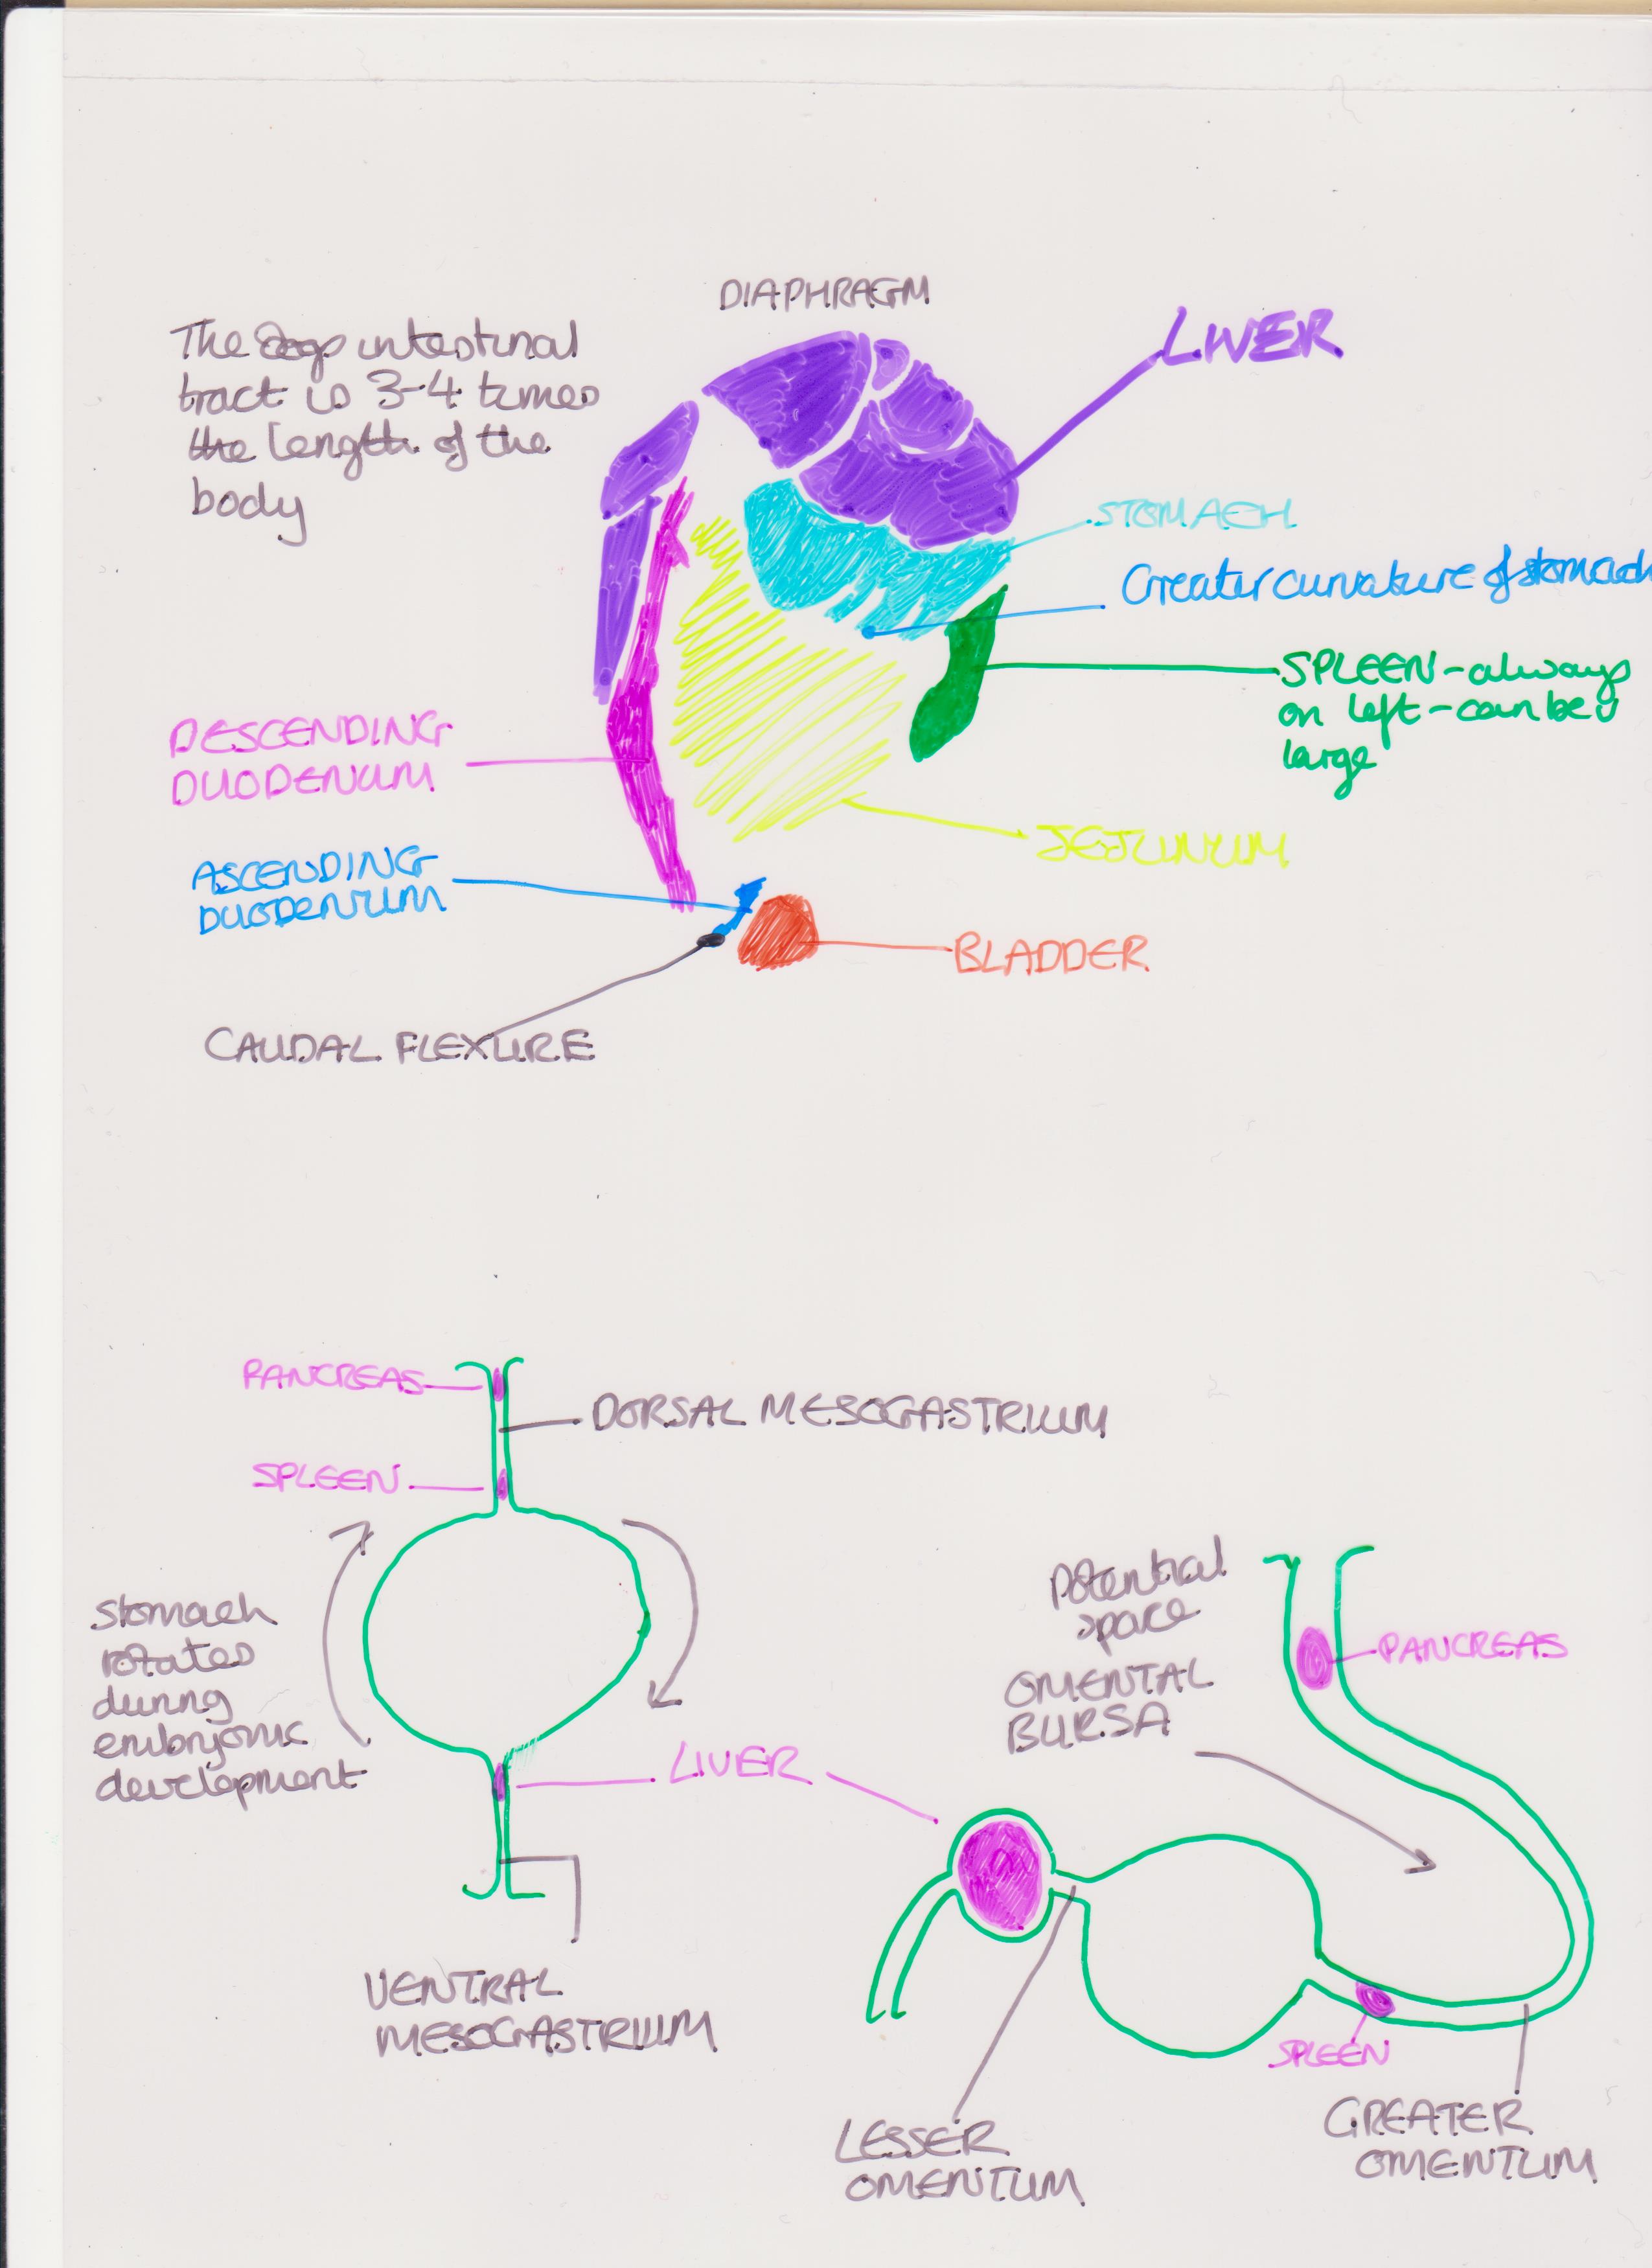 DIAPHRAGM
The dogs intestinal
tract is 3-4 times
the length of the
body
LIVER
STOMACH
Greater curvature of stomach
SPLEEN - always
on left - can be v
large
DESCENDING
DUODENUM
JEJUNUM
ASCENDING
DUODENUM
BLADDER
CAUDAL FLEXURE
PANCREAS
DORSAL MESOGASTRIUM
SPLEEN
stomach
rotates
during
embryonic
development
LIVER
VENTRAL
MESOGASTRIUM
Potential
space
OMENTAL
BURSA
PANCREAS
SPLEEN
LESSER
OMENTUM
GREATER
OMENTUM